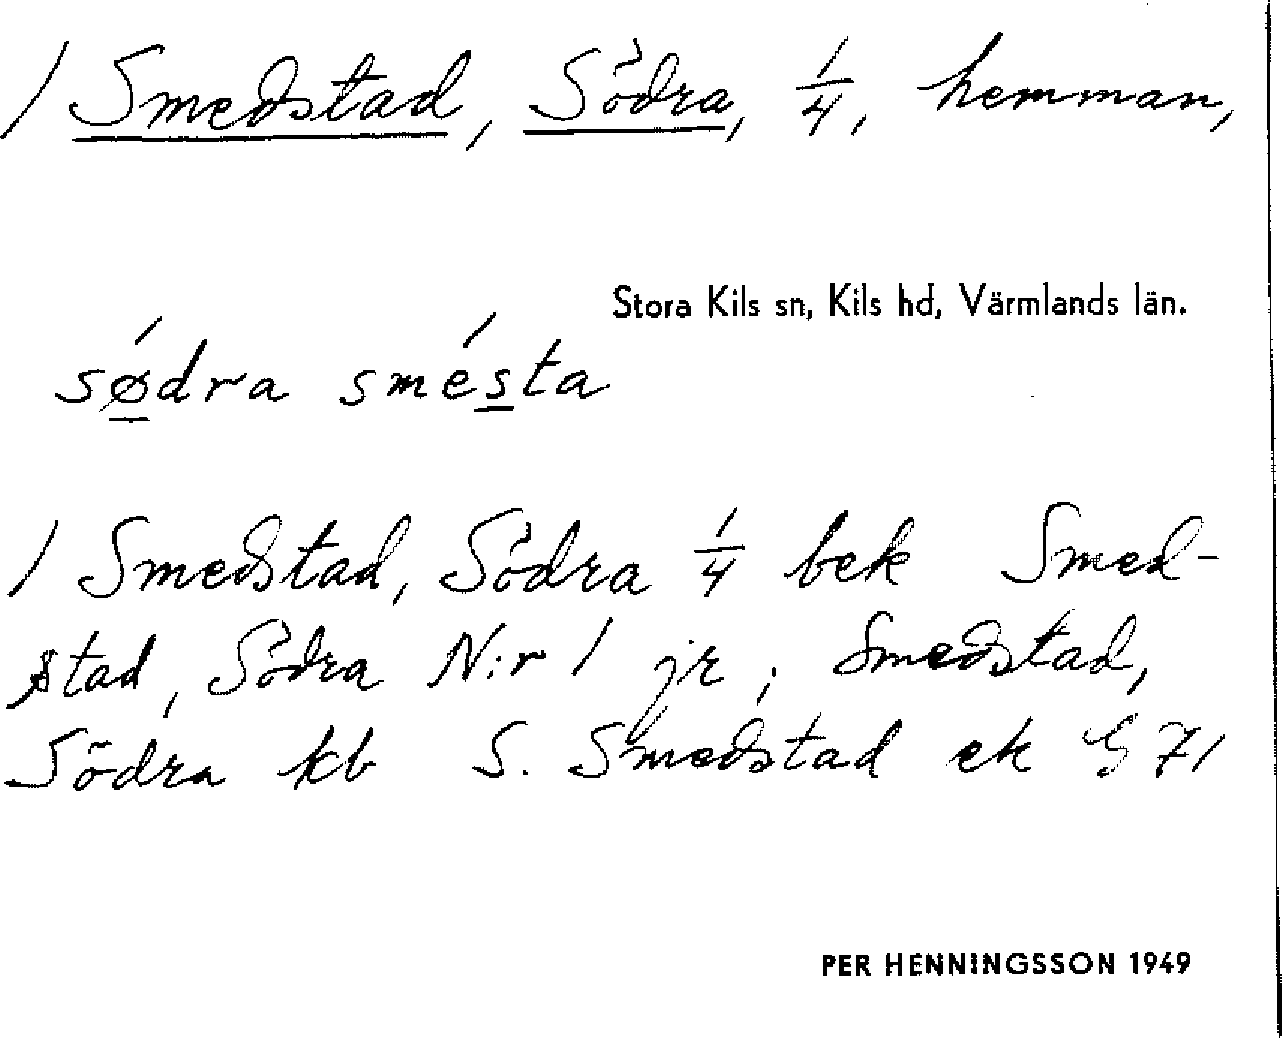 1 Smedstad, Södra, 1/4, hemman,
Stora Kils sn, Kils hd, Värmlands län.
sǿdra smésta
1 Smedstad, Södra 1/4 bek Smed-
stad, Södra N:r 1 jr; Smedstad,
Södra kb S. Smedstad ek G 71
PER HENNINGSSON 1949